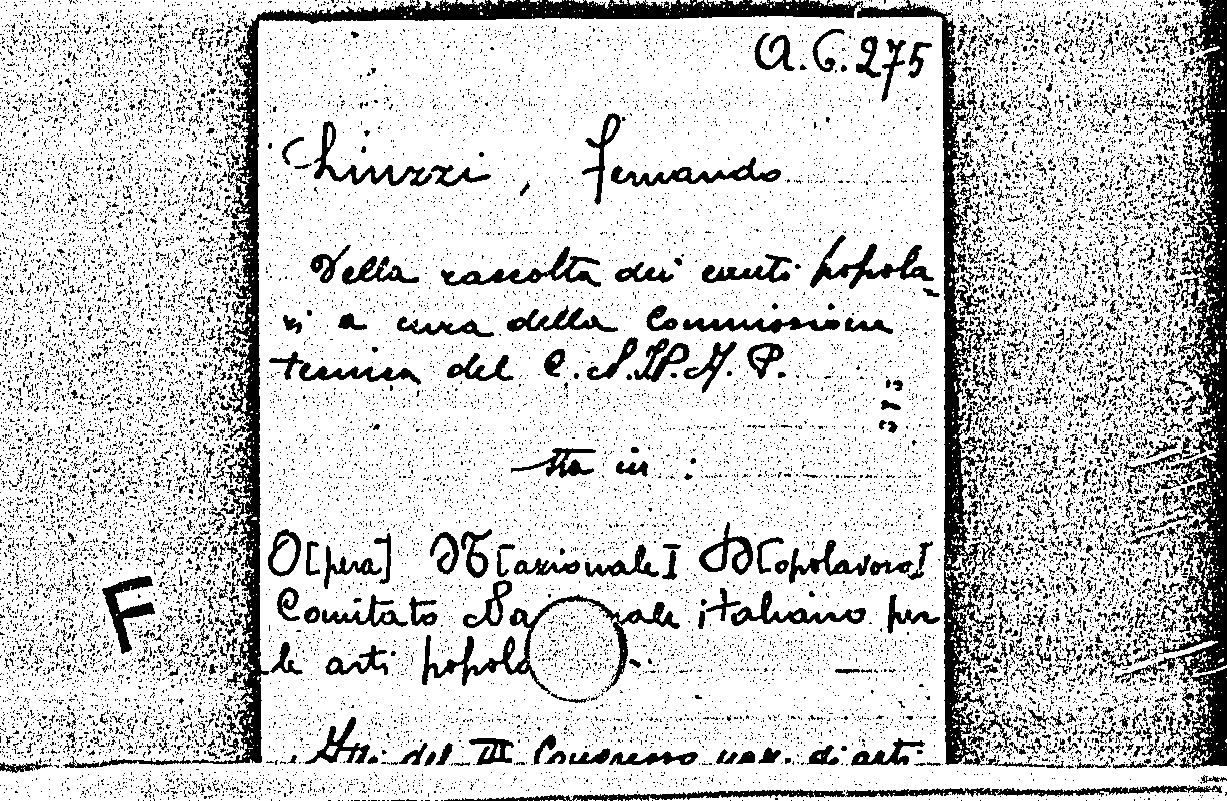 A. G. 275
Liuzzi, Fernando
Della raccolta dei canti popola
ri a cura della Commissione
tecnica del C.N.I.A.P.
sta in :
O[pera] N[azionale] D[opolavoro]
Comitato italiano per
le arti
Atti del III Congresso naz. di arti
F